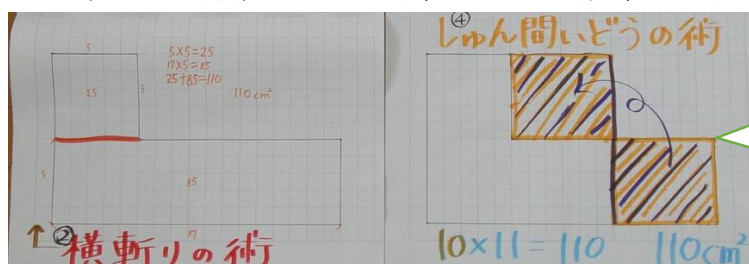 5
5×5=25
17×5=85
25+85=110
25
5
110cm²
5
85
17
↑②横斬りの術
④
しゅん間いどうの術
10×11=110 110cm²